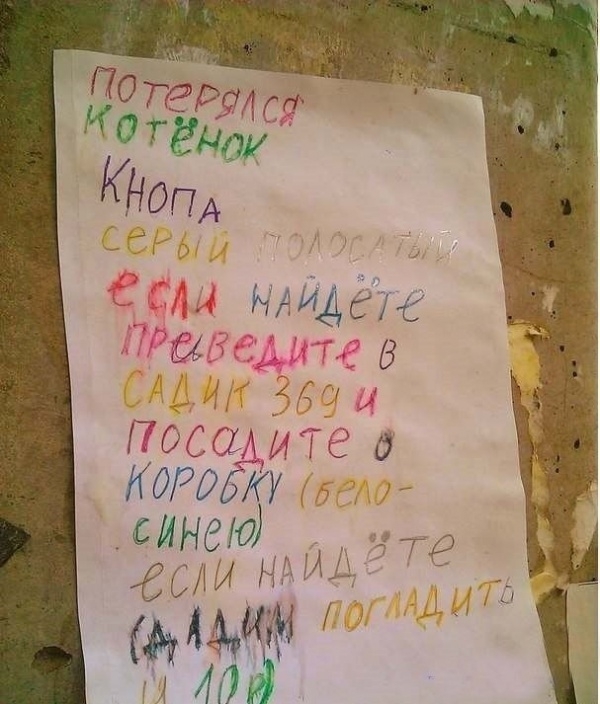 ПОТЕРЯЛСЯ
КОТЁНОК
КНОПА
СЕРЫЙ ПОЛОСАТЫЙ
если НАЙДёТЕ
ПРеВЕДИТЕ В
САДИК 369 И
ПОСАДИТЕ
КОРОБКУ (БЕЛО-
СИНЕЮ)
ЕСЛИ НАЙДЁТЕ
ДАДИМ ПОГЛАДИТЬ
И 10Р